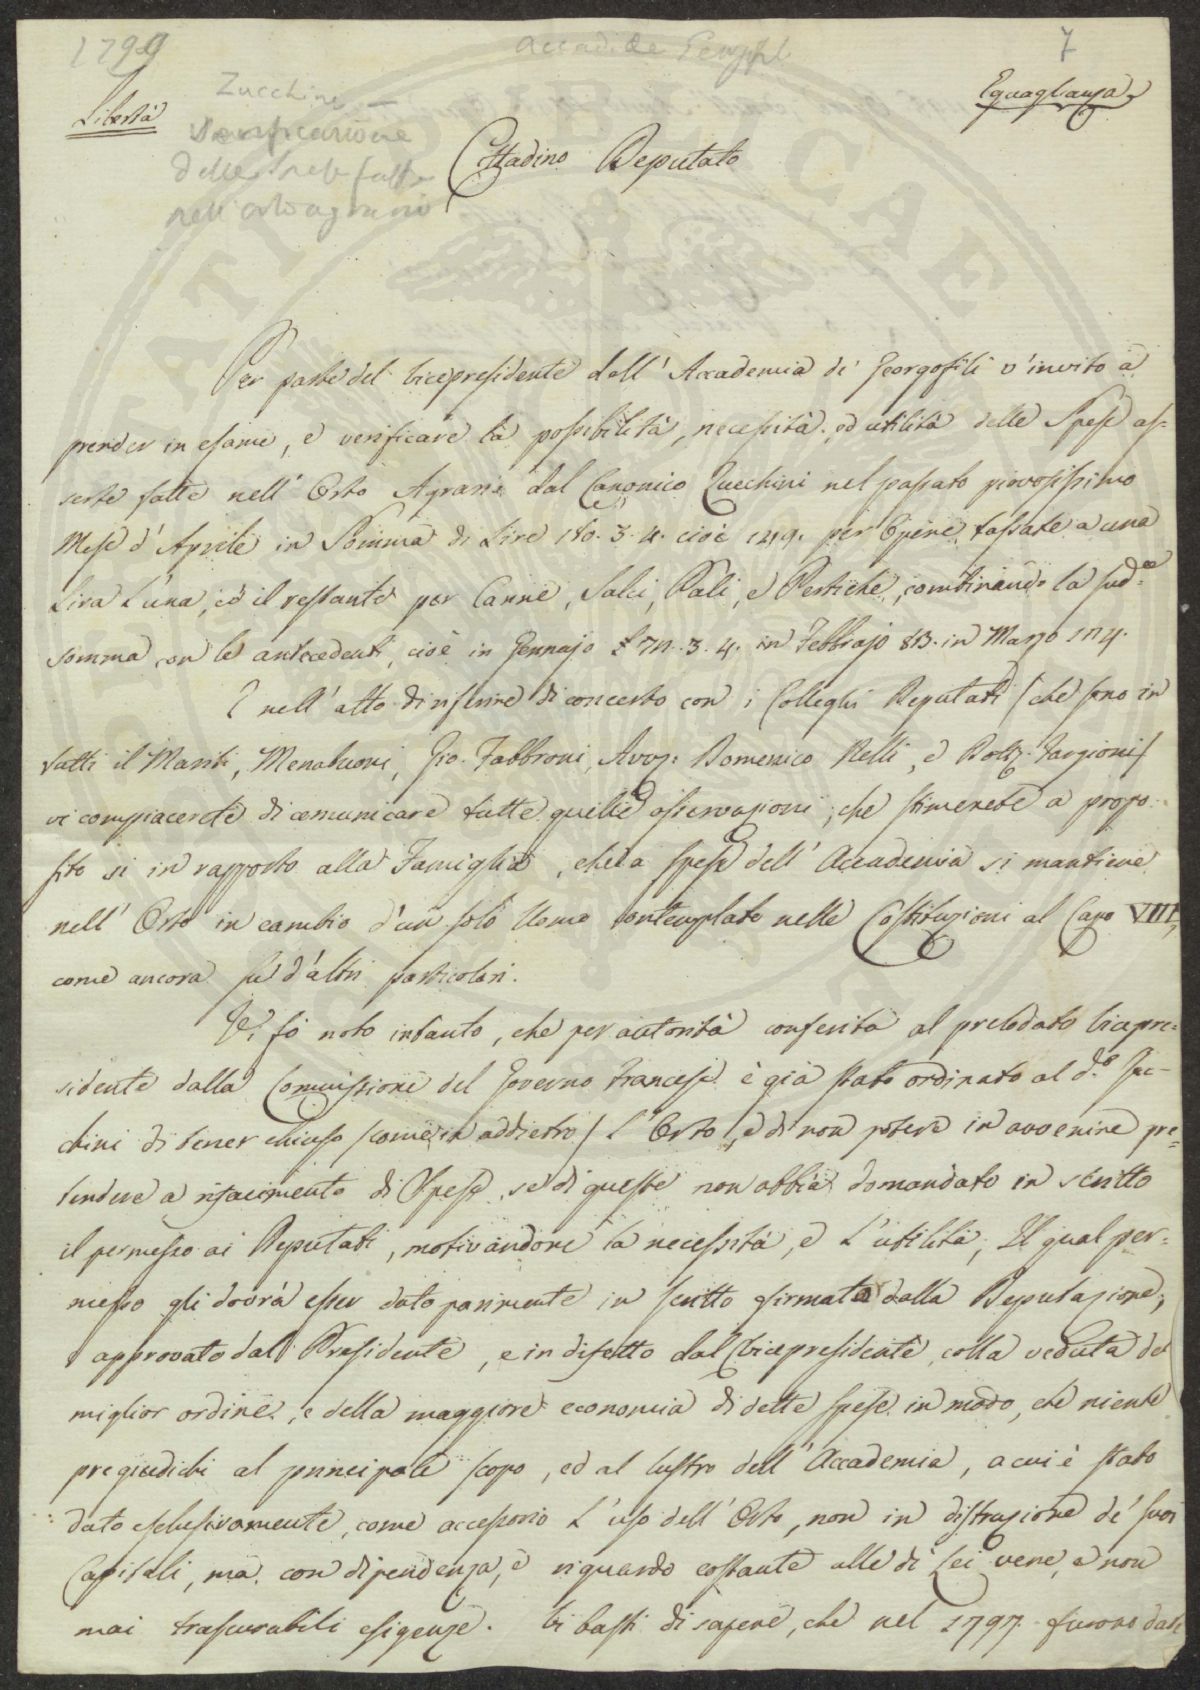 1799
Accad. de Georgofil
7
Libertà
Eguaglianza
Zucchini —
Verificazione
delle spese fatte
nell'orto agrario
Cittadino Deputato
Per parte del Vicepresidente dell'Accademia de' Georgofili v'invito a
prender in esame, e verificare la possibilità, necessità, ed utilità delle Spese as-
serte fatte nell'Orto Agrario dal Canonico Zucchini nel passato piovosissimo
Mese d'Aprile in Somma di Lire 180. 3. 4. cioè 149. per Opere tassate a una
Lira l'una, ed il restante per Canne, Salci, Pali, e Pertiche, combinando la sud.ª
somma con le antecedenti, cioè in Gennajo £ 74. 3. 4. in Febbrajo 83. in Marzo 124.
E nell'atto di riferire di concerto con i Colleghi Deputati (che sono in
tutti il Mariti, Menabuoni, Gio. Fabbroni, Avv. Domenico Nelli, e Dott. Targioni)
vi compiacerete di comunicare tutte quelle osservazioni, che stimerete a propo-
sito si in rapporto alla Famiglia, che a spese dell'Accademia si mantiene
nell'Orto in cambio d'un solo Uomo contemplato nelle Costituzioni al Capo VIII,
come ancora su d'altri particolari.
Vi fò noto intanto, che per autorità conferita al prelodato Vicepre-
sidente dalla Commissione del Governo Francese è già stato ordinato al d.º Zuc-
chini di tener chiuso (come in addietro) l'Orto, e di non potere in avvenire pre-
tendere a rifacimento di Spese, se di queste non abbia domandato in scritto
il permesso ai Deputati, motivandone la necessità, e l'utilità; Il qual per-
messo gli dovrà esser dato parimente in scritto firmato dalla Deputazione,
approvato dal Presidente, e in difetto dal Vicepresidente, colla veduta del
miglior ordine, e della maggiore economia di dette spese in modo, che niente
pregiudichi al principale scopo, ed al lustro dell'Accademia, a cui è stato
dato esclusivamente, come accessorio l'uso dell'Orto, non in distruzione de' suoi
Capitali, ma con dipendenza, e riguardo costante alle di Lei vere, e non
mai trascurabili esigenze. Vi basti di sapere, che nel 1797. furono dati